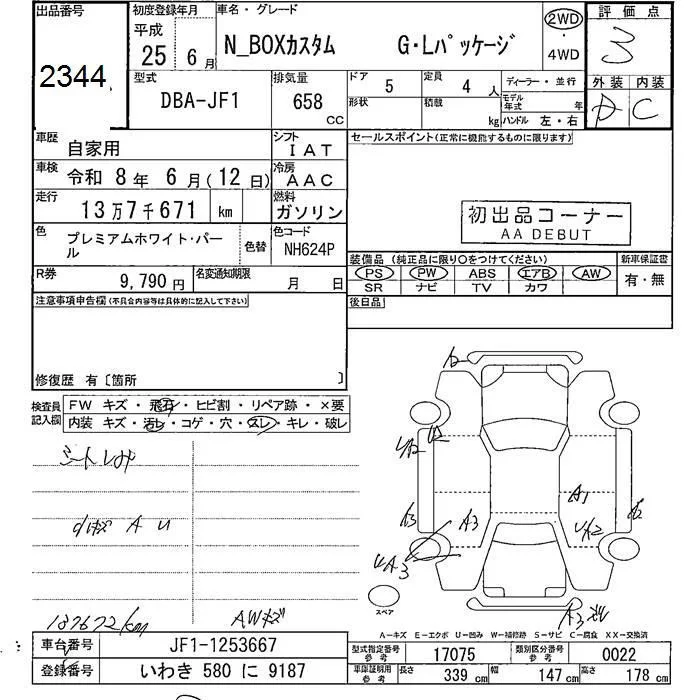 出品番号
2344
初度登録年月
平成
25 6 月
車名・グレード
N_BOXカスタム G・Lパッケージ
2WD
・
4WD
評価点
3
外装 内装
D C
型式
DBA-JF1
排気量
658
CC
ドア
5
定員
4 人
形状
積載
kg
ディーラー・並行
モデル年式 年
ハンドル 左・右
車歴
自家用
シフト
IAT
車検
令和 8 年 6 月(12 日)
冷房
AAC
走行
13万7千671 km
燃料
ガソリン
色
プレミアムホワイト・パール
色替
色コード
NH624P
R券
9,790 円
名変通知期限
月 日
セールスポイント(正常に機能するものに限ります)
初出品コーナー
AA DEBUT
装備品(純正品に限り〇をつけてください)
新車保証書
PS PW ABS エアB AW
SR ナビ TV カワ
有・無
後日品
注意事項申告欄(不具合内容等は具体的に記入して下さい)
修復歴 有〔箇所 〕
検査員記入欄
FW キズ・飛石・ヒビ割・リペア跡・×要
内装 キズ・汚レ・コゲ・穴・スレ・キレ・破レ
A U
137672km
AWキズ
UA2
A3
A3
UA3
A1
UA2
A3
スペア
A－キズ E－エクボ U－凹み W－補修跡 S－サビ C－腐食 XX－交換済
車台番号
JF1-1253667
登録番号
いわき 580 に 9187
型式指定番号
参考
17075
類別区分番号
参考
0022
車庫証明用
参考
長さ
339 cm
幅
147 cm
高さ
178 cm